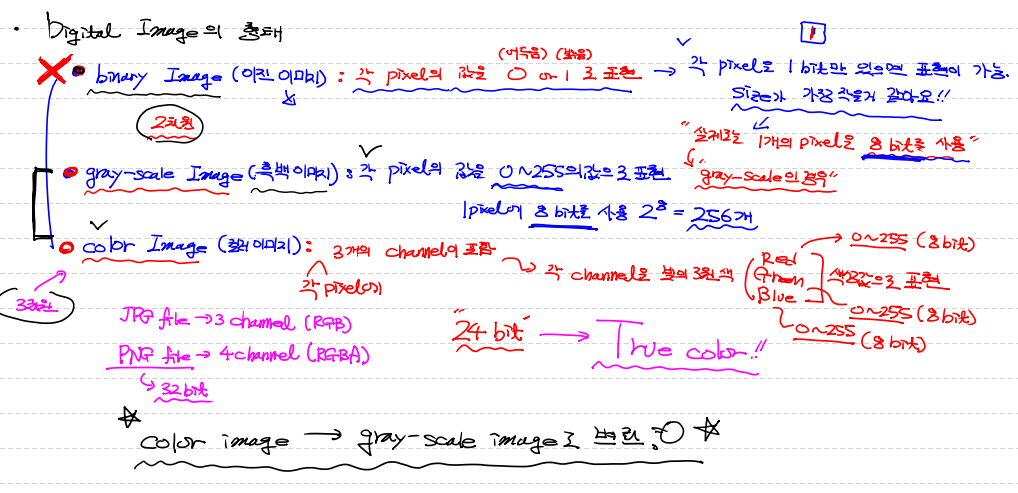 • Digital Image의 형태
1
• binary Image (이진 이미지) : 각 pixel의 값을 0 or 1 로 표현 → 각 pixel을 1 bit만 있으면 표현이 가능.
(어두움) (밝음)
Size가 가장 작을거 같아요!!
2차원
"실제로는 1개의 pixel을 8 bit를 사용"
• gray-scale Image (흑백이미지) : 각 pixel의 값을 0~255의값으로 표현
"gray-scale의 경우"
1pixel에 8 bit를 사용 2⁸ = 256개
• color Image (컬러이미지) :
3개의 channel이 포함
각 pixel에
→ 각 channel을 빛의 3원색 (Red Green Blue) 색상값으로 표현
→ 0~255 (8 bit)
0~255 (8 bit)
0~255 (8 bit)
3차원
JPG file → 3 channel (RGB)
PNG file → 4 channel (RGBA)
32 bit
"24 bit" → True color!!
☆ color image → gray-scale image로 변환 ☆